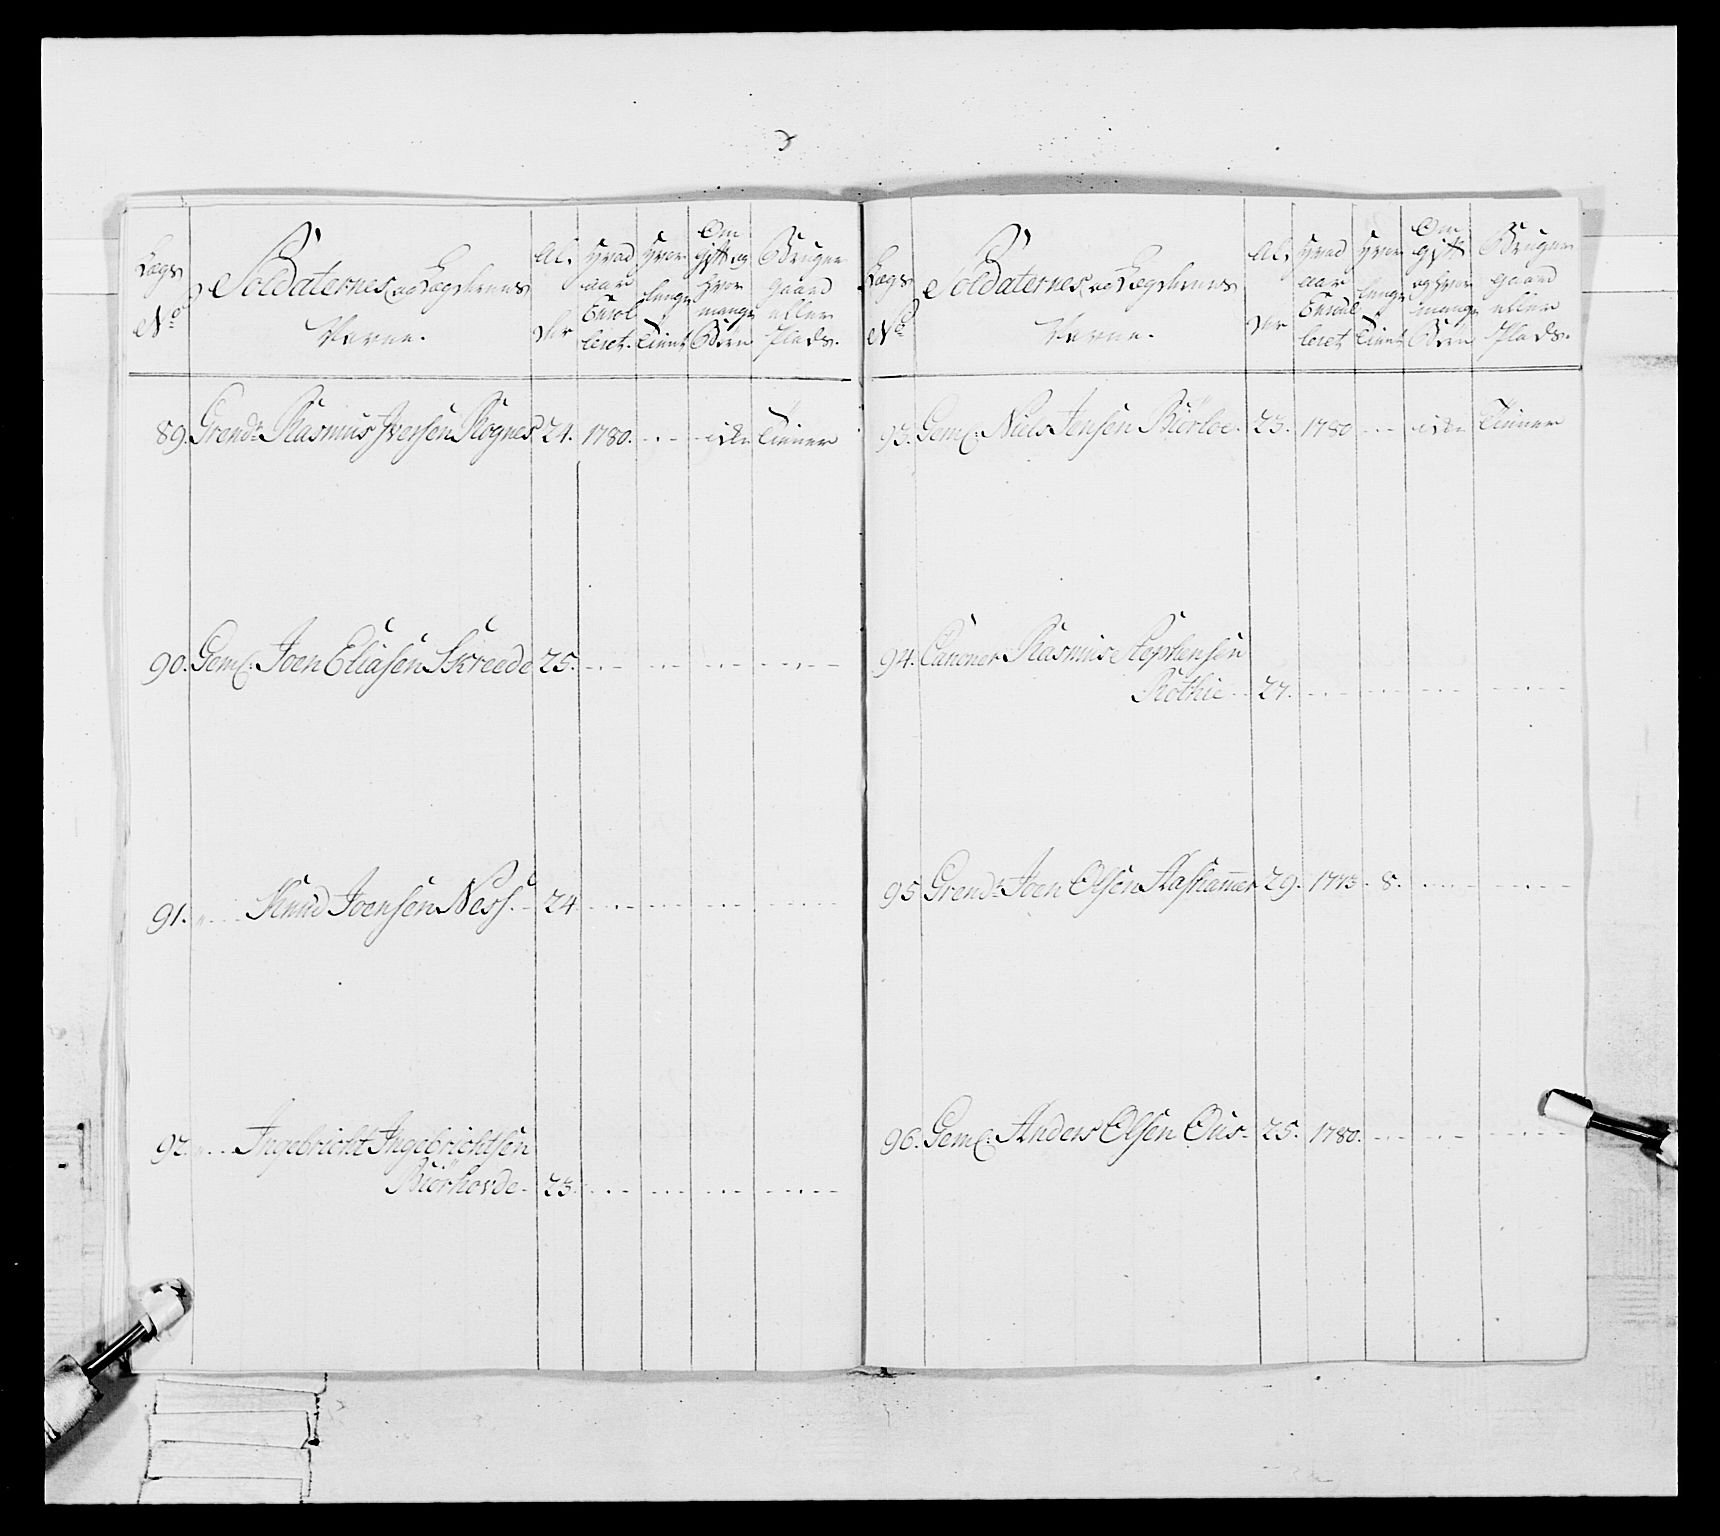 Lægs No
Soldaternes og Lægdernes Navne.
Al, der
Hvad aar Enrol leret.
Hvor lenge Tient
Om gift og hvor mange Børn
Bruger gaard eller Plads.
89. Grendr Rasmus Iversen Rognes 24. 1780. - - - icke Tiener
90. Geml. Joen Eliasen Skreede 25. - - -
91. " - - - Knud Joensen Ness. - 24 - - -
92. " - - - Ingebricht Ingebrichtsen
Biörhovde - 23. - - -
Lægs No
Soldaternes og Lægdernes Navne.
Al, der
Hvad aar Enroul leret
Hvor lenge Tient
Om gift og hvor mange Børn
Bruger gaard eller Plads.
93. Geml. Niels Jensen Biörloe. 23. 1780 - - - icke Tiener
94. Canoner Rasmus Stephensen
Röthie - - 27. - - -
95 Grendr Joen Olsen Aashammer 29. 1773. 8. - - -
96. Geml. Anders Olsen Ous - 25. 1780. - - -